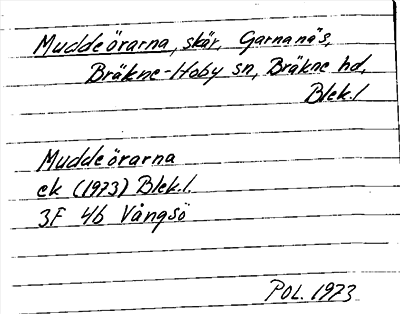 Muddeörarna, skär, Garnanäs,
Bräkne-Hoby sn, Bräkne hd,
Blek.l
Muddeörarna
ek (1973) Blek.l.
3F 4b Vångsö
Pol. 1973